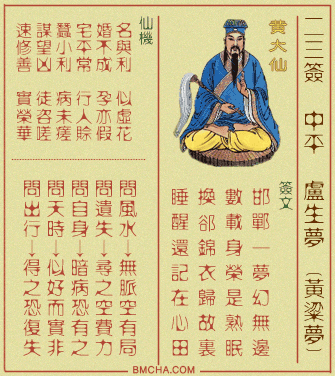 簽 中平 盧生夢 (黃粱夢)
黃大仙
簽文
邯鄲一夢幻無邊
數載身榮是熟眠
換郤錦衣歸故裏
睡醒還記在心田
仙機
名與利 似虛花
婚不成 孕亦假
宅平常 行人賒
蠶小利 病未瘥
謀望凶 徒咨嗟
速修善 實榮華
問風水→無脈空有局
問遺失→尋之空費力
問自身→暗病恐有之
問天時→似好而實非
問出行→得之恐復失
BMCHA.COM